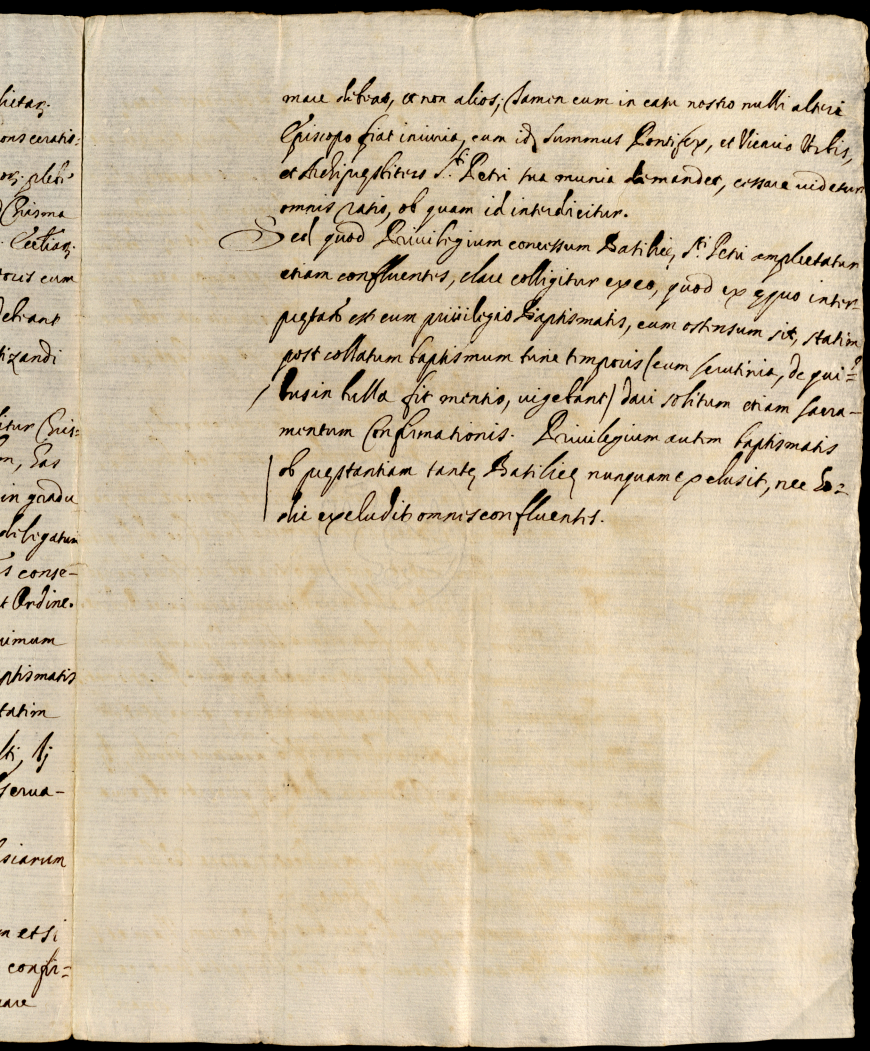 lietaꝝ.
consecratio=
oꝝ. plebi
Chrisma
Ecclia
toris cum
debeant
tizandi
itur Chris=
m, Eas
in gradu
diligatur
s conse-
t Ordine.
uimum
ptismatis
tatim
lti, Ij
serua-
siarum
m etsi
confir=
mare
mare debeat, et non alios; tamen cum in casu nostro nulli alteri
Episcopo fiat iniuria, cum id Summus Pontifex, et Vicario Urbis,
et Archipręsbitero S.ti Petri sua munia demandet, cessare uidetur
omnis ratio, ob quam id interdicitur.
Sed quod Priuilegium concessum Basilicę S.ti Petri amplectatur
etiam confluentes, clare colligitur ex eo, quod ex ęquo inter-
pretatū est cum priuilegio Baptismatis, cum ostensum sit, statim
post collatum baptismum tunc temporis (cum scrutinia, de qui=
bus in bulla fit mentio, uigebant) dari solitum etiam sacra-
mentum Confirmationis. Priuilegium autem baptismatis
ob pręstantiam tantę Basilicę nunquam exclusit, nec ho=
die excludit omnes confluentes.